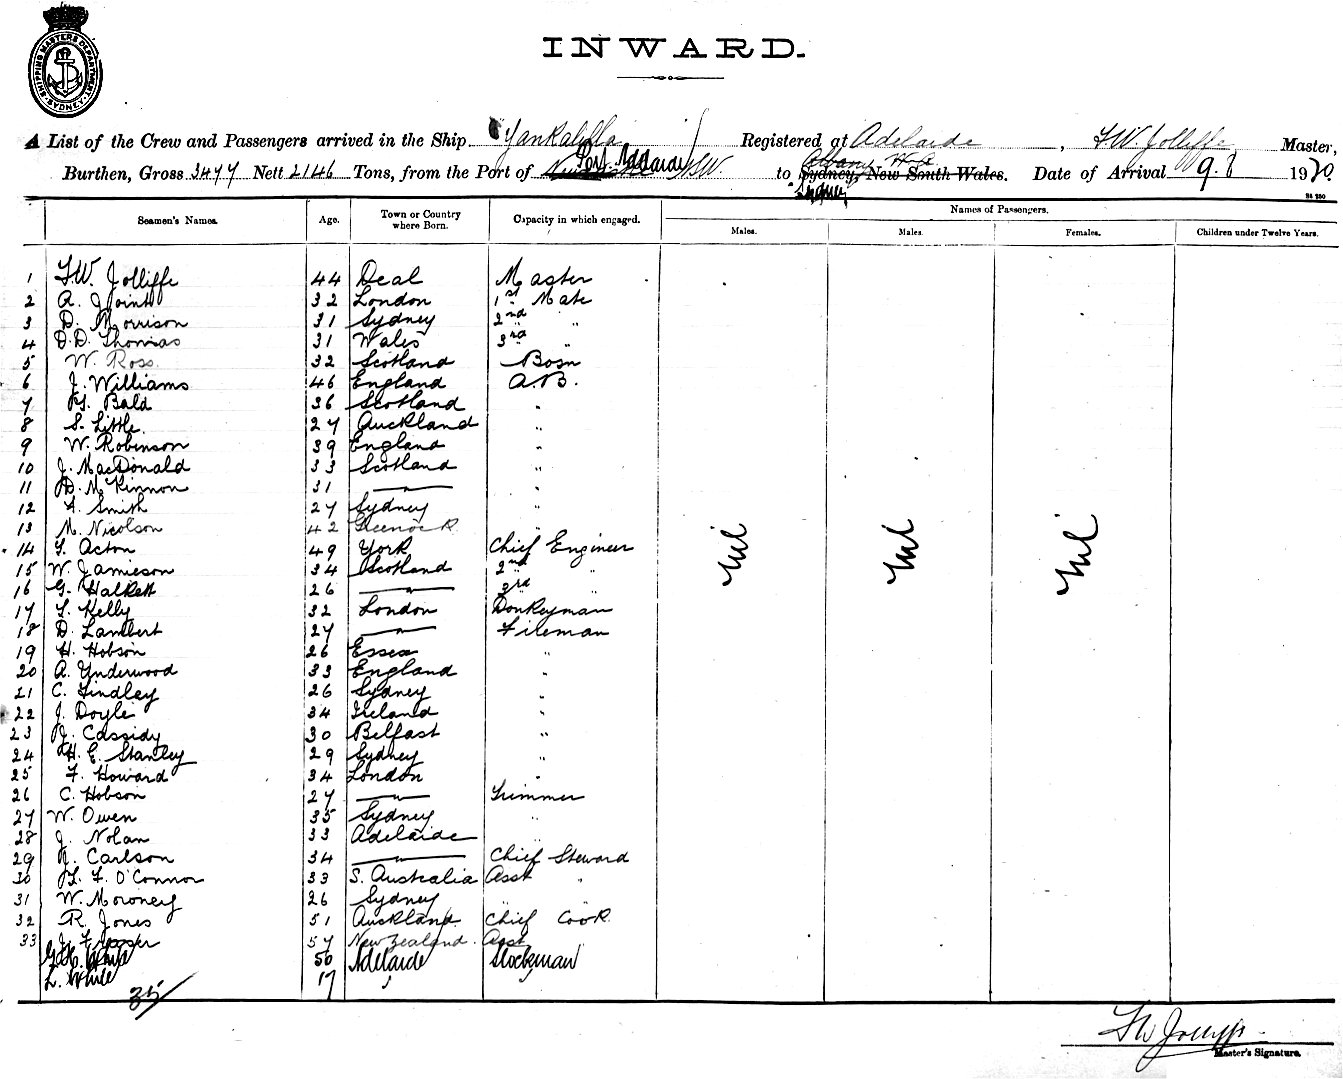 SHIPPING MASTERS DEPARTMENT SYDNEY
INWARD.
A List of the Crew and Passengers arrived in the Ship Yankalilla Registered at Adelaide, F.W. Jolliffe Master,
Burthen, Gross 3477 Nett 2146 Tons, from the Port of Port Adelaide NSW. to Albany W.A Sydney, New South Wales. Date of Arrival 9.8 1920
Sydney
Names of Passengers.
Seamen's Names. Age. Town or Country where Born. Capacity in which engaged. Males. Males. Females. Children under Twelve Years.
1 F.W. Jolliffe 44 Deal Master
2 A. Joint 32 London 1st Mate
3 D. Morrison 31 Sydney 2nd "
4 D.D. Thomas 31 Wales 3rd "
5 W. Ross. 32 Scotland Bosn
6 J. Williams 46 England A.B.
7 H. Bald 36 Scotland "
8 S. Little. 27 Auckland "
9 W. Robinson 39 England "
10 J. MacDonald 33 Scotland "
11 D. McKinnon 31 — " — "
12 A. Smith 27 Sydney "
13 M. Nicolson 42 Greenock
14 F. Acton 49 York Chief Engineer
15 W. Jamieson 34 Scotland 2nd "
16 G. Halkett 26 — " — 3rd "
17 F. Kelly 32 London Donkeyman
18 D. Lambert 27 — " — Fireman
19 H. Hobson 26 Essex "
20 A. Underwood 33 England "
21 C. Findley 26 Sydney "
22 J. Doyle 34 Ireland "
23 J. Cassidy 30 Belfast "
24 H. E. Stanley 29 Sydney
25 F. Howard 34 London "
26 C. Hobson 27 — " — Trimmer
27 W. Owen 35 Sydney "
28 J. Nolan 33 Adelaide "
29 N. Carlson 34 — " — Chief Steward
30 L. F. O'Connor 33 S. Australia Asst "
31 W. Moroney 26 Sydney "
32 R. Jones 51 Auckland Chief Cook
33 J. Fraser 57 New Zealand. Asst
50 Adelaide Stockman
L. White 17 "
35
Nil Nil Nil
F W Jolliffe
Master's Signature.